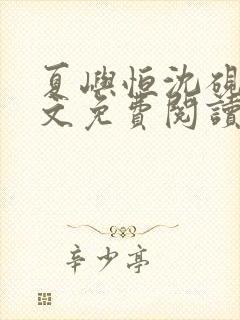 夏嶼恒沈硯
文免費閱讀
辛少亭